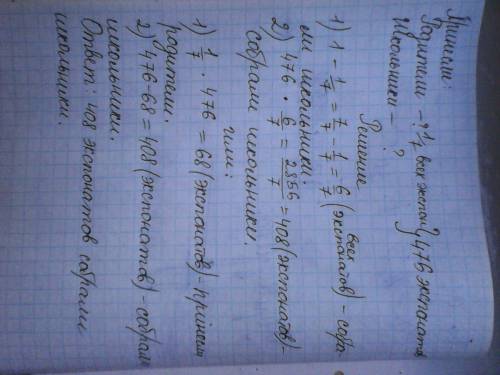 Принесли:
Родители - ? 1/7 всех экспон. } 476 экспонатов
Школьники - ?
Решение
1) 1 - 1/7 = 7/7 - 1/7 = 6/7 (всех экспонатов) - собра-
ли школьники.
2) 476 · 6/7 = 2856/7 = 408 (экспонатов) -
собрали школьники.
или:
1) 1/7 · 476 = 68 (экспонатов) - принесли
родители.
2) 476 - 68 = 408 (экспонатов) - собрали
школьники.
Ответ: 408 экспонатов собрали
школьники.